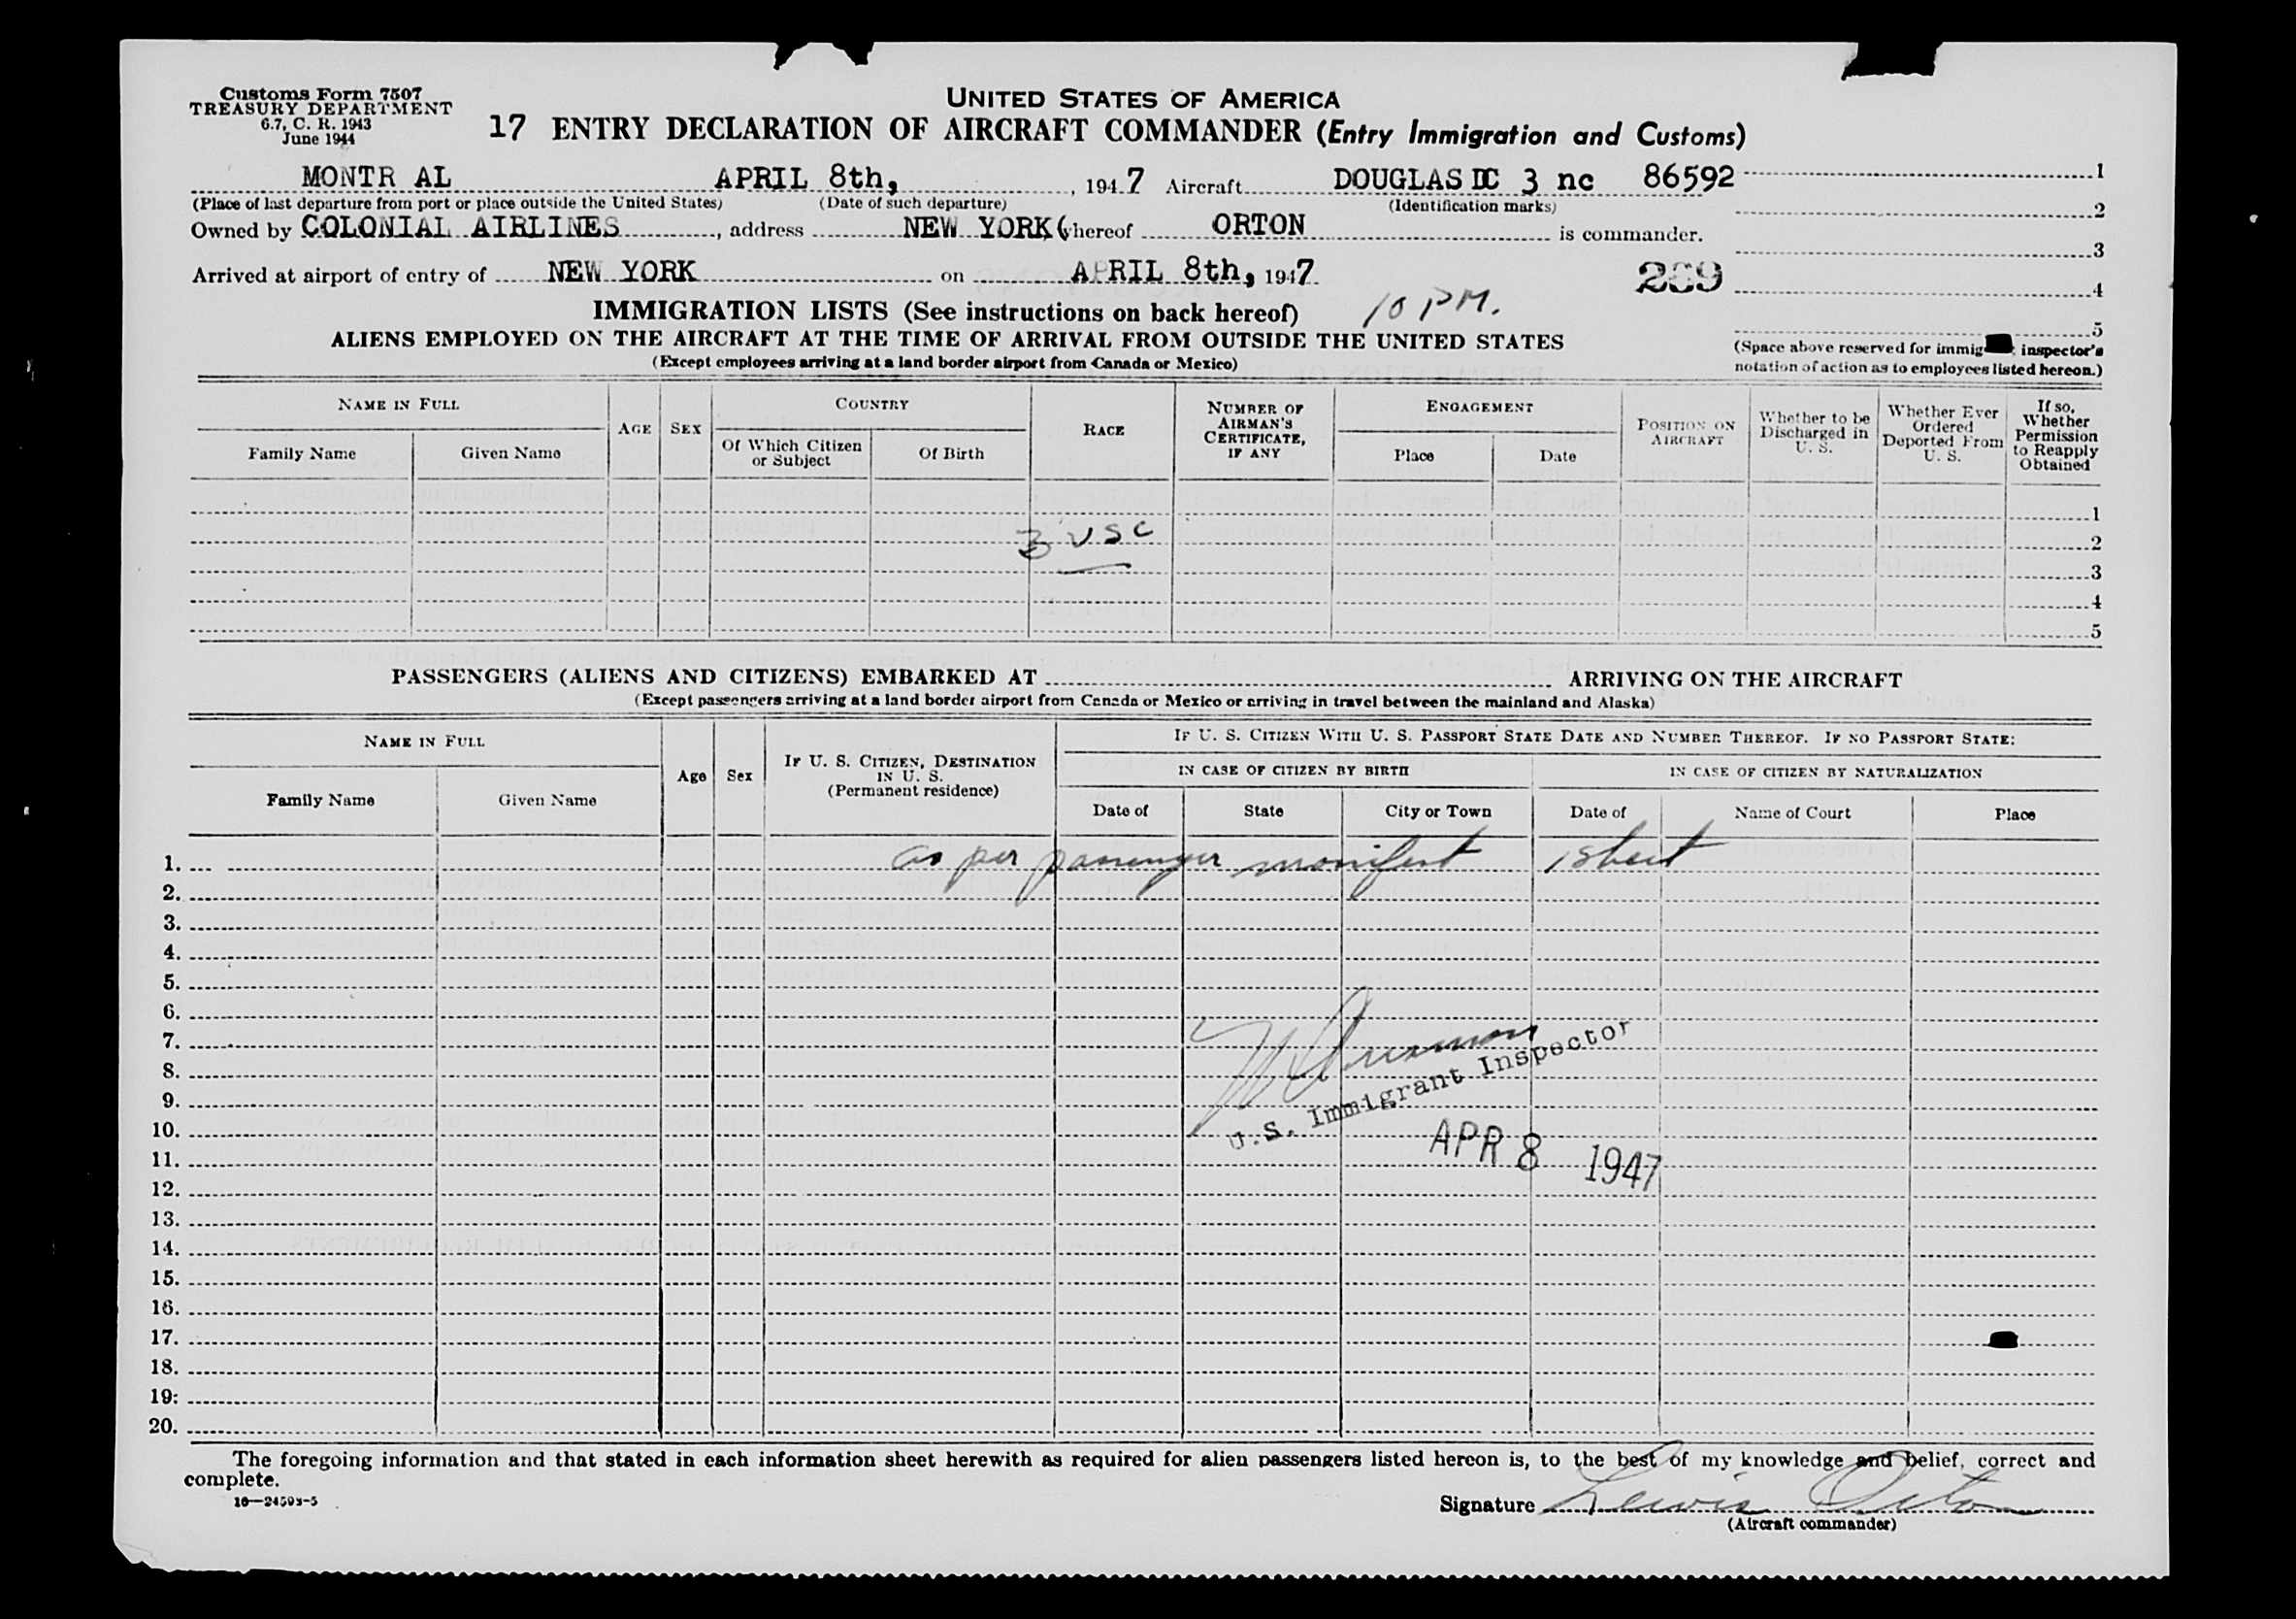 Customs Form 7507
TREASURY DEPARTMENT
6.7, C. R. 1943
June 1944
UNITED STATES OF AMERICA
17 ENTRY DECLARATION OF AIRCRAFT COMMANDER (Entry Immigration and Customs)
MONTR AL APRIL 8th, , 194 7 Aircraft DOUGLAS DC 3 nc 86592
(Place of last departure from port or place outside the United States) (Date of such departure) (Identification marks)
Owned by COLONIAL AIRLINES, address NEW YORK (whereof ORTON is commander.
Arrived at airport of entry of NEW YORK on APRIL 8th, 1947
289
10 PM.
1
2
3
4
5
(Space above reserved for immig inspector's
notation of action as to employees listed hereon.)
IMMIGRATION LISTS (See instructions on back hereof)
ALIENS EMPLOYED ON THE AIRCRAFT AT THE TIME OF ARRIVAL FROM OUTSIDE THE UNITED STATES
(Except employees arriving at a land border airport from Canada or Mexico)
NAME IN FULL
Family Name Given Name
AGE SEX
COUNTRY
Of Which Citizen or Subject Of Birth
RACE
NUMBER OF AIRMAN'S CERTIFICATE, IF ANY
ENGAGEMENT
Place Date
POSITION ON AIRCRAFT
Whether to be Discharged in U. S.
Whether Ever Ordered Deported From U. S.
If so, Whether Permission to Reapply Obtained
1
3 USC 2
3
4
5
PASSENGERS (ALIENS AND CITIZENS) EMBARKED AT ARRIVING ON THE AIRCRAFT
(Except passengers arriving at a land border airport from Canada or Mexico or arriving in travel between the mainland and Alaska)
NAME IN FULL
Family Name Given Name
Age Sex
IF U. S. CITIZEN, DESTINATION IN U. S.
(Permanent residence)
IF U. S. CITIZEN WITH U. S. PASSPORT STATE DATE AND NUMBER THEREOF. IF NO PASSPORT STATE:
IN CASE OF CITIZEN BY BIRTH IN CASE OF CITIZEN BY NATURALIZATION
Date of State City or Town Date of Name of Court Place
1. as per passenger manifest 1 sheet
2.
3.
4.
5.
6.
7.
8.
9.
U.S. Immigrant Inspector
10.
APR 8 1947
11.
12.
13.
14.
15.
16.
17.
18.
19:
20.
The foregoing information and that stated in each information sheet herewith as required for alien passengers listed hereon is, to the best of my knowledge and belief, correct and
complete.
16—24593-5
Signature Lewis Orton
(Aircraft commander)